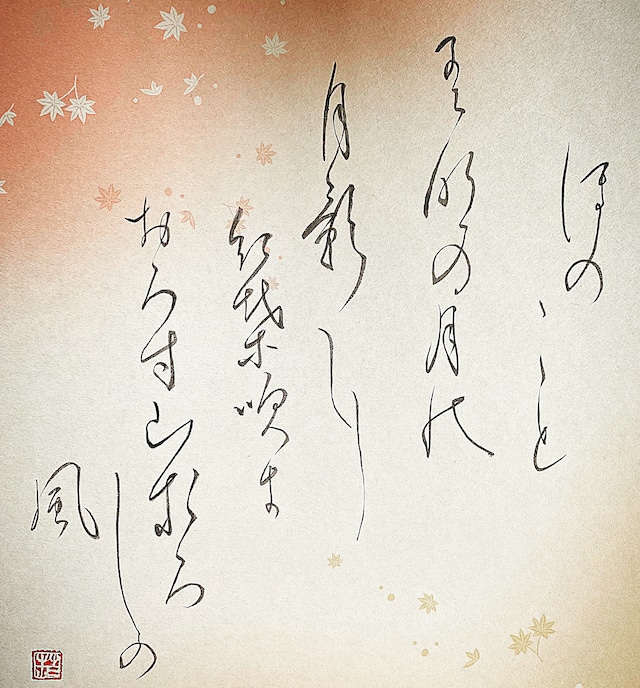 ほのゝゝと
有明の月の
月影に
紅葉吹き
おろす山おろ
しの
風